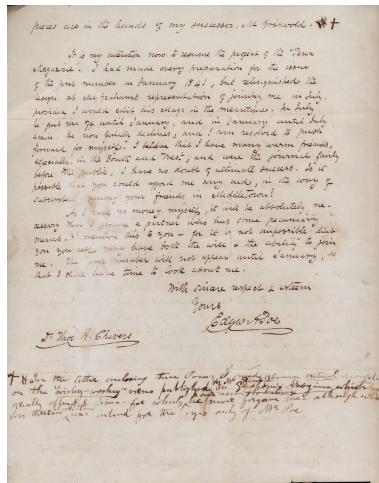 pieces are in the hands of my successor, Mr Griswold.
It is my intention now to resume the project of the "Penn
Magazine". I had made every preparation for the issue
of the first number in January 1841, but relinquished the
design at Mr Graham's representation of joining me in July,
provided I would edit his mag: in the meantime. In July
he put me off until January, and in January until July
again. He now finally declines, and I am resolved to push
forward for myself. I believe that I have many warm friends,
especially in the South and West, and were the journal fairly
before the public, I have no doubt of ultimate success. Is it
possible that you could afford me any aid, in the way of
subscribers among your friends in Middletown?
As I have no money myself, it will be absolutely ne-
cessary that I procure a partner who has some pecuniary
means. I mention this to you – for it is not impossible that
you yourself may have both the will & the ability to join
me. The first number will not appear until January, so
that I shall have time to look about me.
With sincere respect & esteem
Yours
Edgar A Poe
Dr Thos H. Chivers
In the letter enclosing
on the wishy-washy published in Magazine which
for which he never forgave me although
was intended for the eyes only of Mr Poe